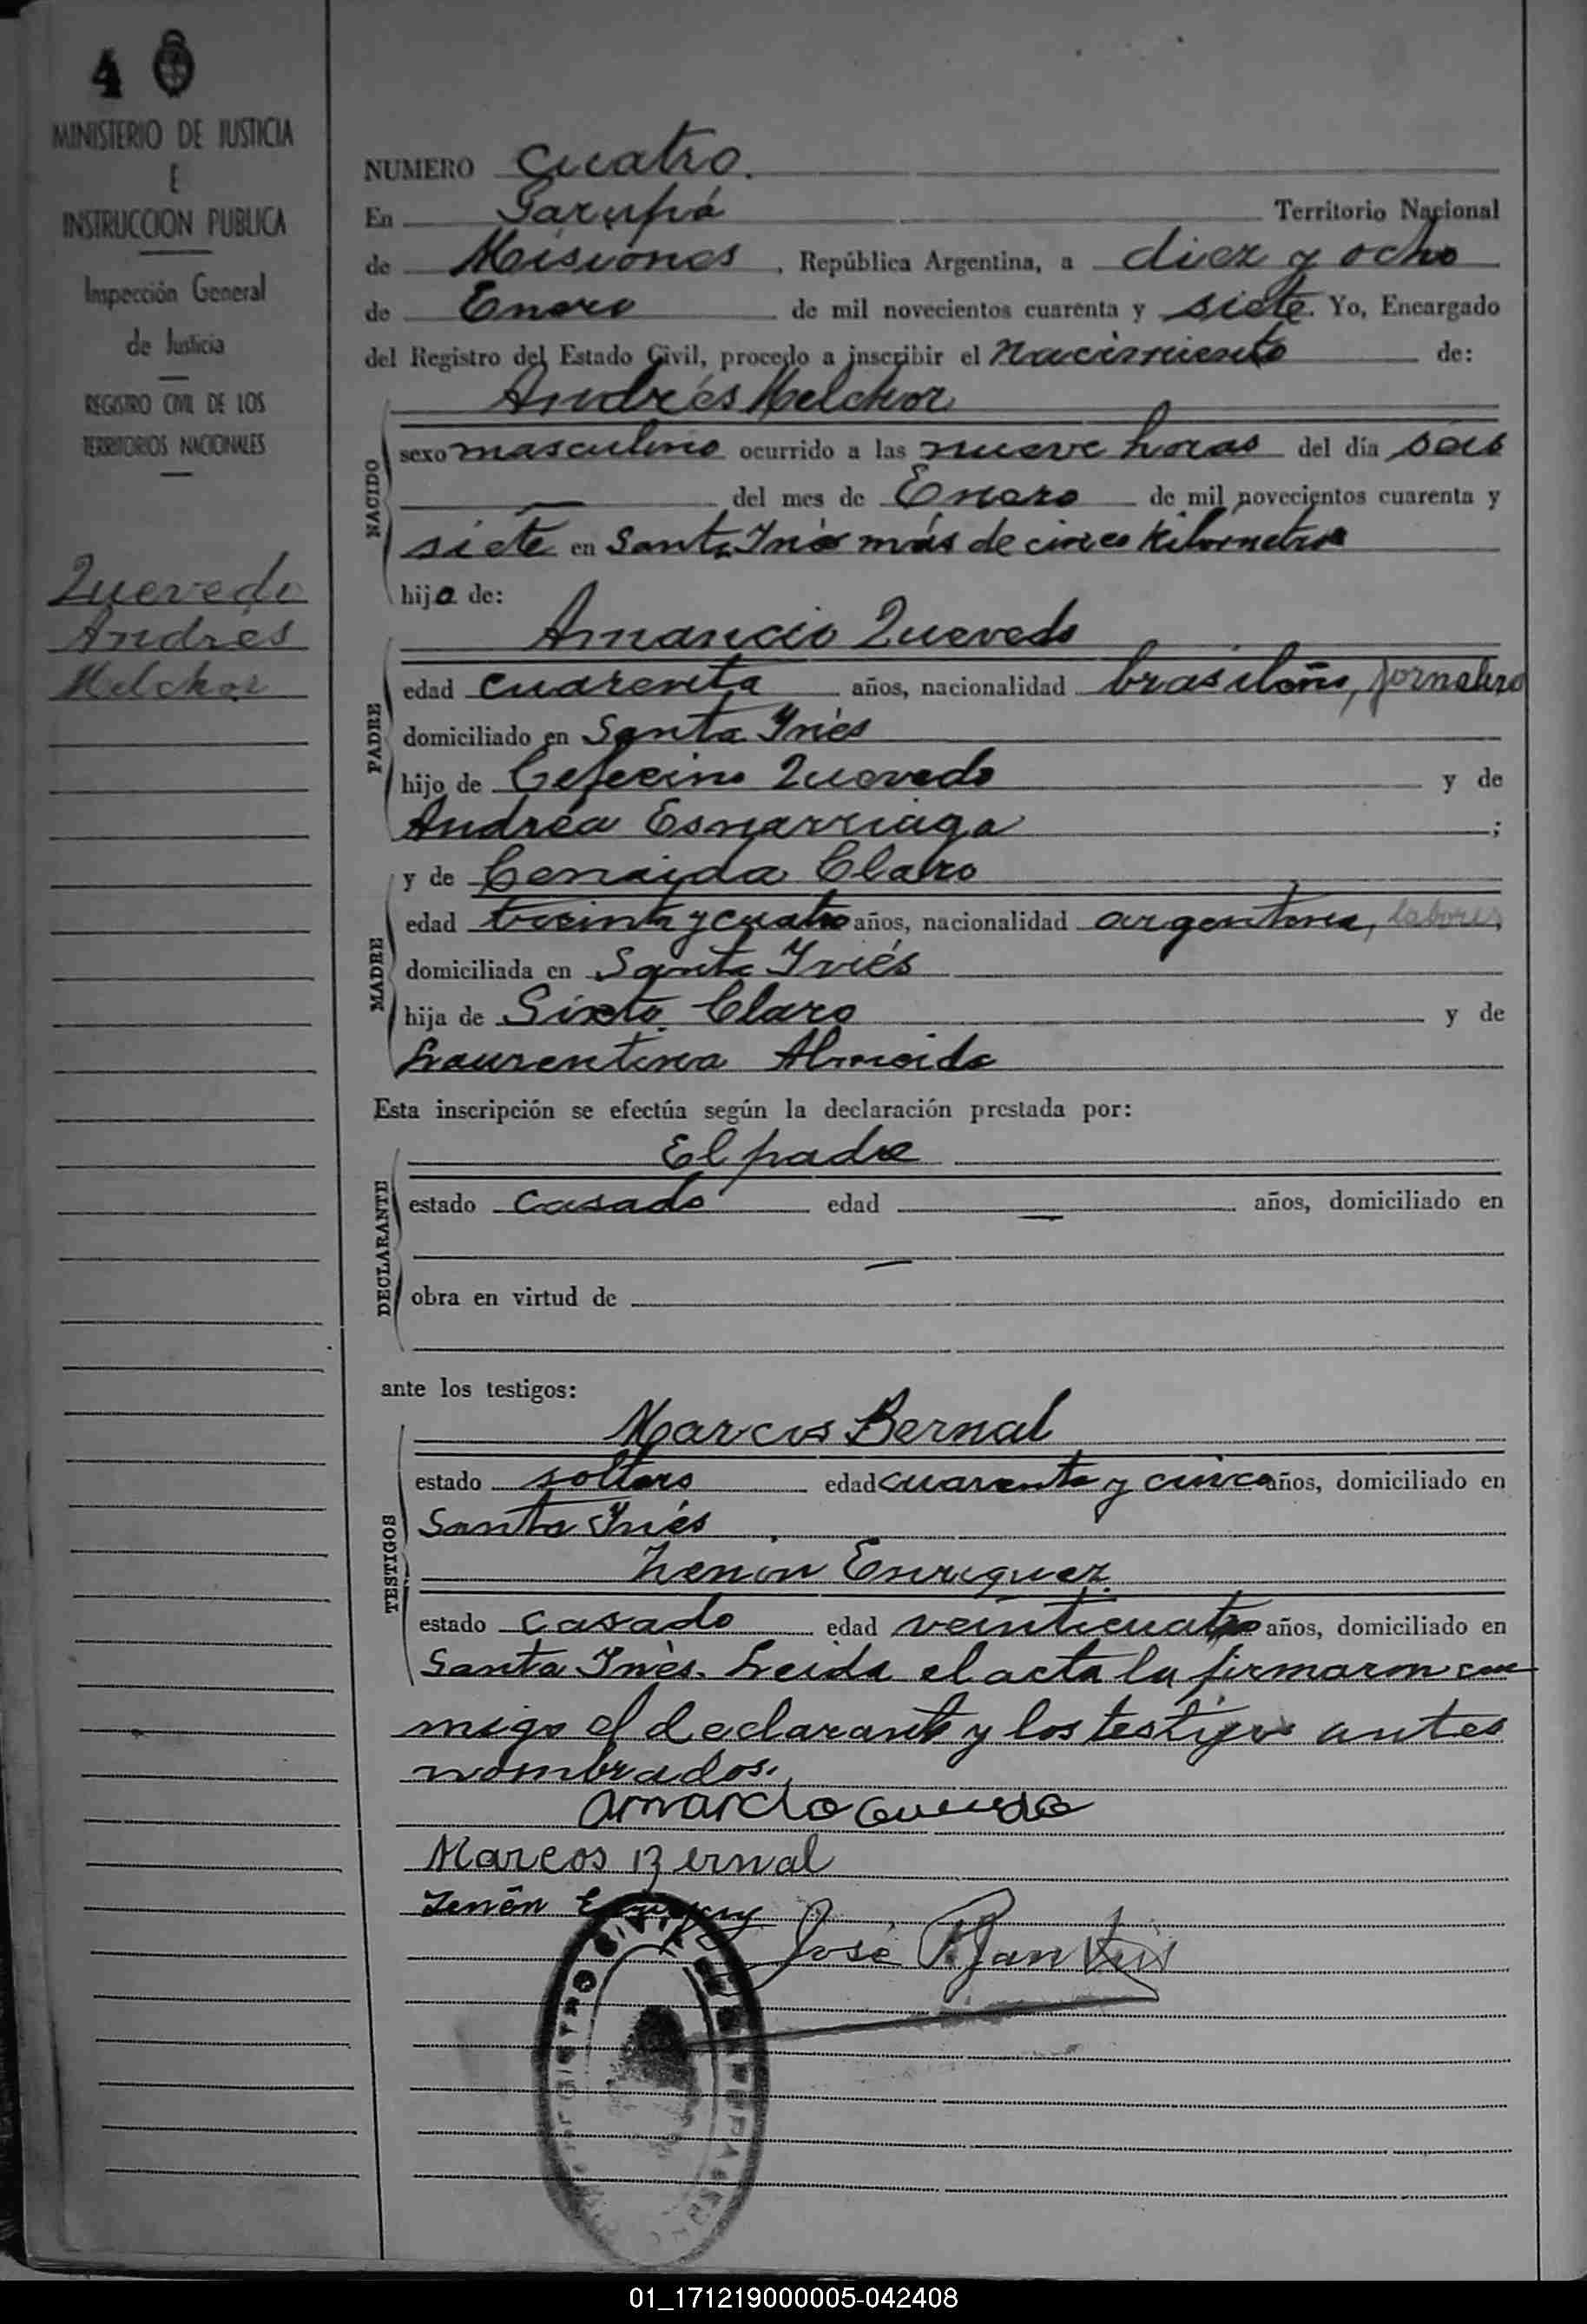 4
MINISTERIO DE JUSTICIA
E
INSTRUCCION PUBLICA
Inspección General
de Justicia
REGISTRO CIVIL DE LOS
TERRITORIOS NACIONALES
Quevedo
Andrés
Melchor
NUMERO Cuatro.
En Garupá Territorio Nacional
de Misiones, República Argentina, a diez y ocho
de Enero de mil novecientos cuarenta y siete. Yo, Encargado
del Registro del Estado Civil, procedo a inscribir el Nacimiento de:
Andrés Melchor
NACIDO
sexo masculino ocurrido a las nueve horas del día seis
del mes de Enero de mil novecientos cuarenta y
siete en Santa Inés más de cinco Kilometros
hijo de:
Amancio Quevedo
PADRE
edad cuarenta años, nacionalidad brasileño, jornalero
domiciliado en Santa Inés
hijo de Ceferino Quevedo y de
Andréa Esnarriaga;
y de Cenaida Claro
MADRE
edad treinta y cuatro años, nacionalidad argentina, labores,
domiciliada en Santa Inés
hija de Sixto Claro y de
Laurentina Almeida
Esta inscripción se efectúa según la declaración prestada por:
El padre
DECLARANTE
estado casado edad años, domiciliado en
obra en virtud de
ante los testigos:
Marcos Bernal
TESTIGOS
estado soltero edad cuarenta y cinco años, domiciliado en
Santa Inés
Zenón Enriquez
estado casado edad veinticuatro años, domiciliado en
Santa Inés. Leida el acta la firmaron con
migo el declarante y los testigos antes
nombrados.
Amancio Quevedo
Marcos Bernal
Zenón
José
01_171219000005-042408